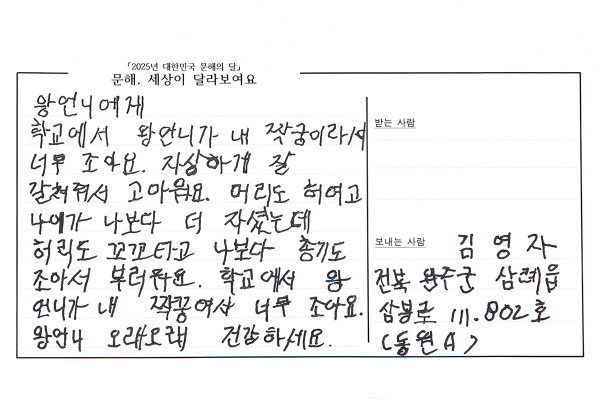 「2025년 대한민국 문해의 달」
문해, 세상이 달라보여요
왕언니에게
학교에서 왕언니가 내 짝궁이라서
너무 조아요. 자상하게 잘
갈쳐줘서 고마워요. 머리도 허여고
나이가 나보다 더 자셨는데
허리도 꼬꼬타고 나보다 총기도
조아서 부러워요. 학교에서 왕
언니가 내 짝꿍여서 너무 조아요.
왕언니 오래오래 건강하세요.
받는 사람
보내는 사람 김영자
전북 완주군 삼례읍
삼봉로 111.802호
(동원A)